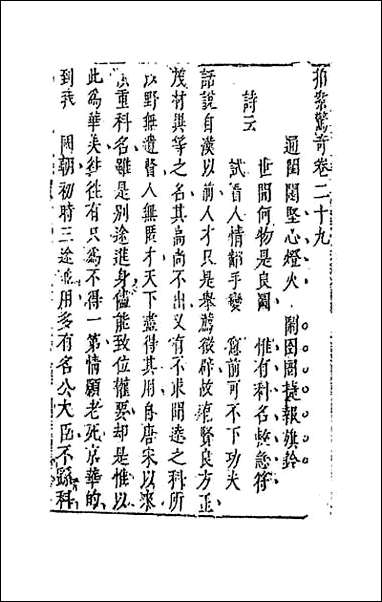 拍案驚奇卷二十九
通閨闥堅心燈火　鬧囹圄捷報旗鈴
詩云
世間何物是良圖　惟有科名救急符
試看人情翻手變　窓前可不下功夫
話說自漢以前人才只是舉薦徵辟故有賢良方正
茂材異等之名其高尚不出又有不求聞達之科所
以野無遺賢人無匿才天下盡得其用自唐宋以來
俱重科名雖是別途進身儘能致位權要却是惟以
此爲華美徃徃有只爲不得一第情願老死京華的
到我　國朝初時三途並用多有名公大臣不繇科